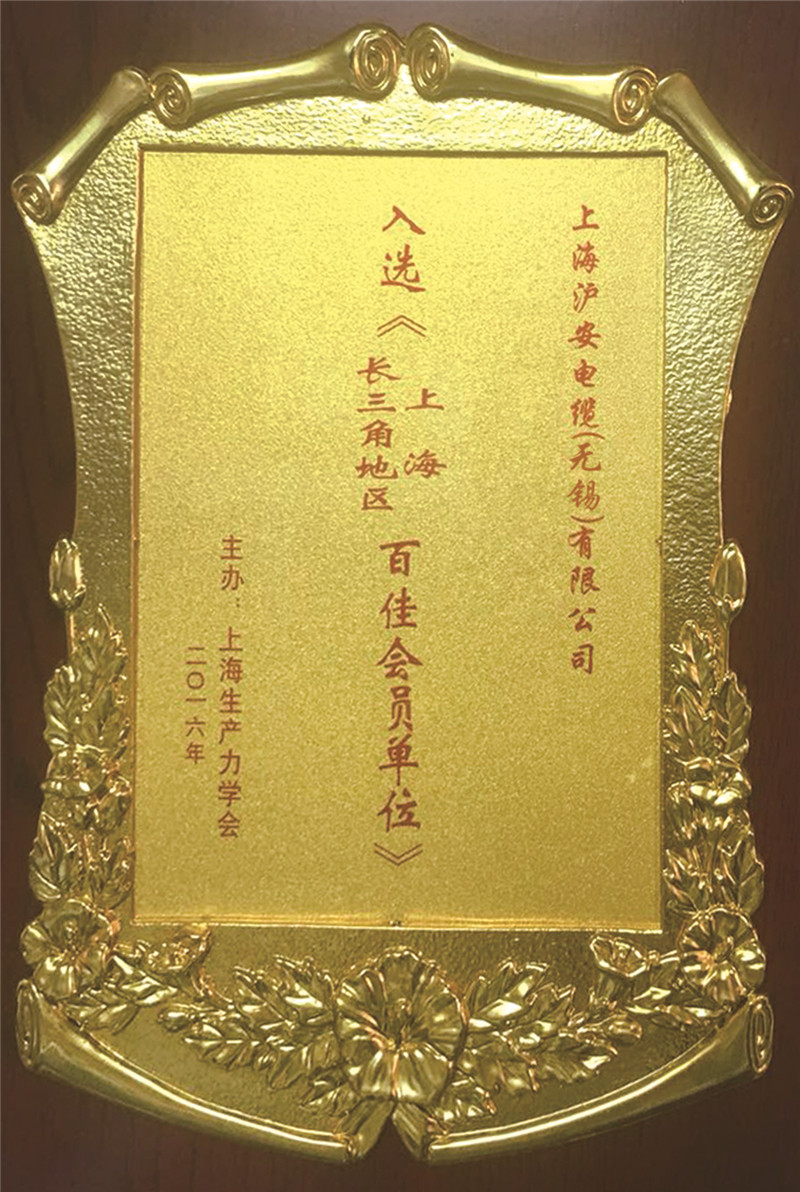 上海沪安电缆(无锡)有限公司
入选《上海
长三角地区
百佳会员单位》
主办:上海生产力学会
二〇一六年